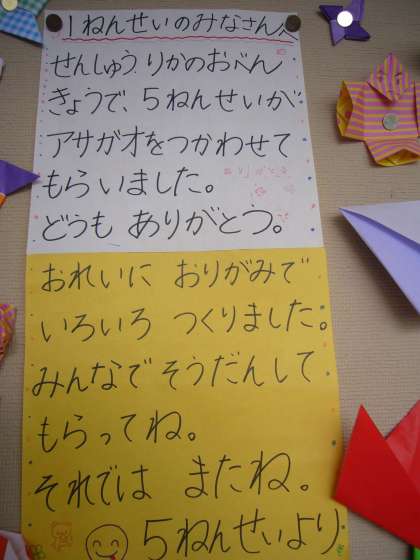 1ねんせいのみなさんへ
せんしゅう りかのおべん
きょうで、5ねんせいが
アサガオをつかわせて
もらいました。
どうも ありがとう。
おれいに おりがみで
いろいろ つくりました。
みんなで そうだんして
もらってね。
それでは またね。
5ねんせいより